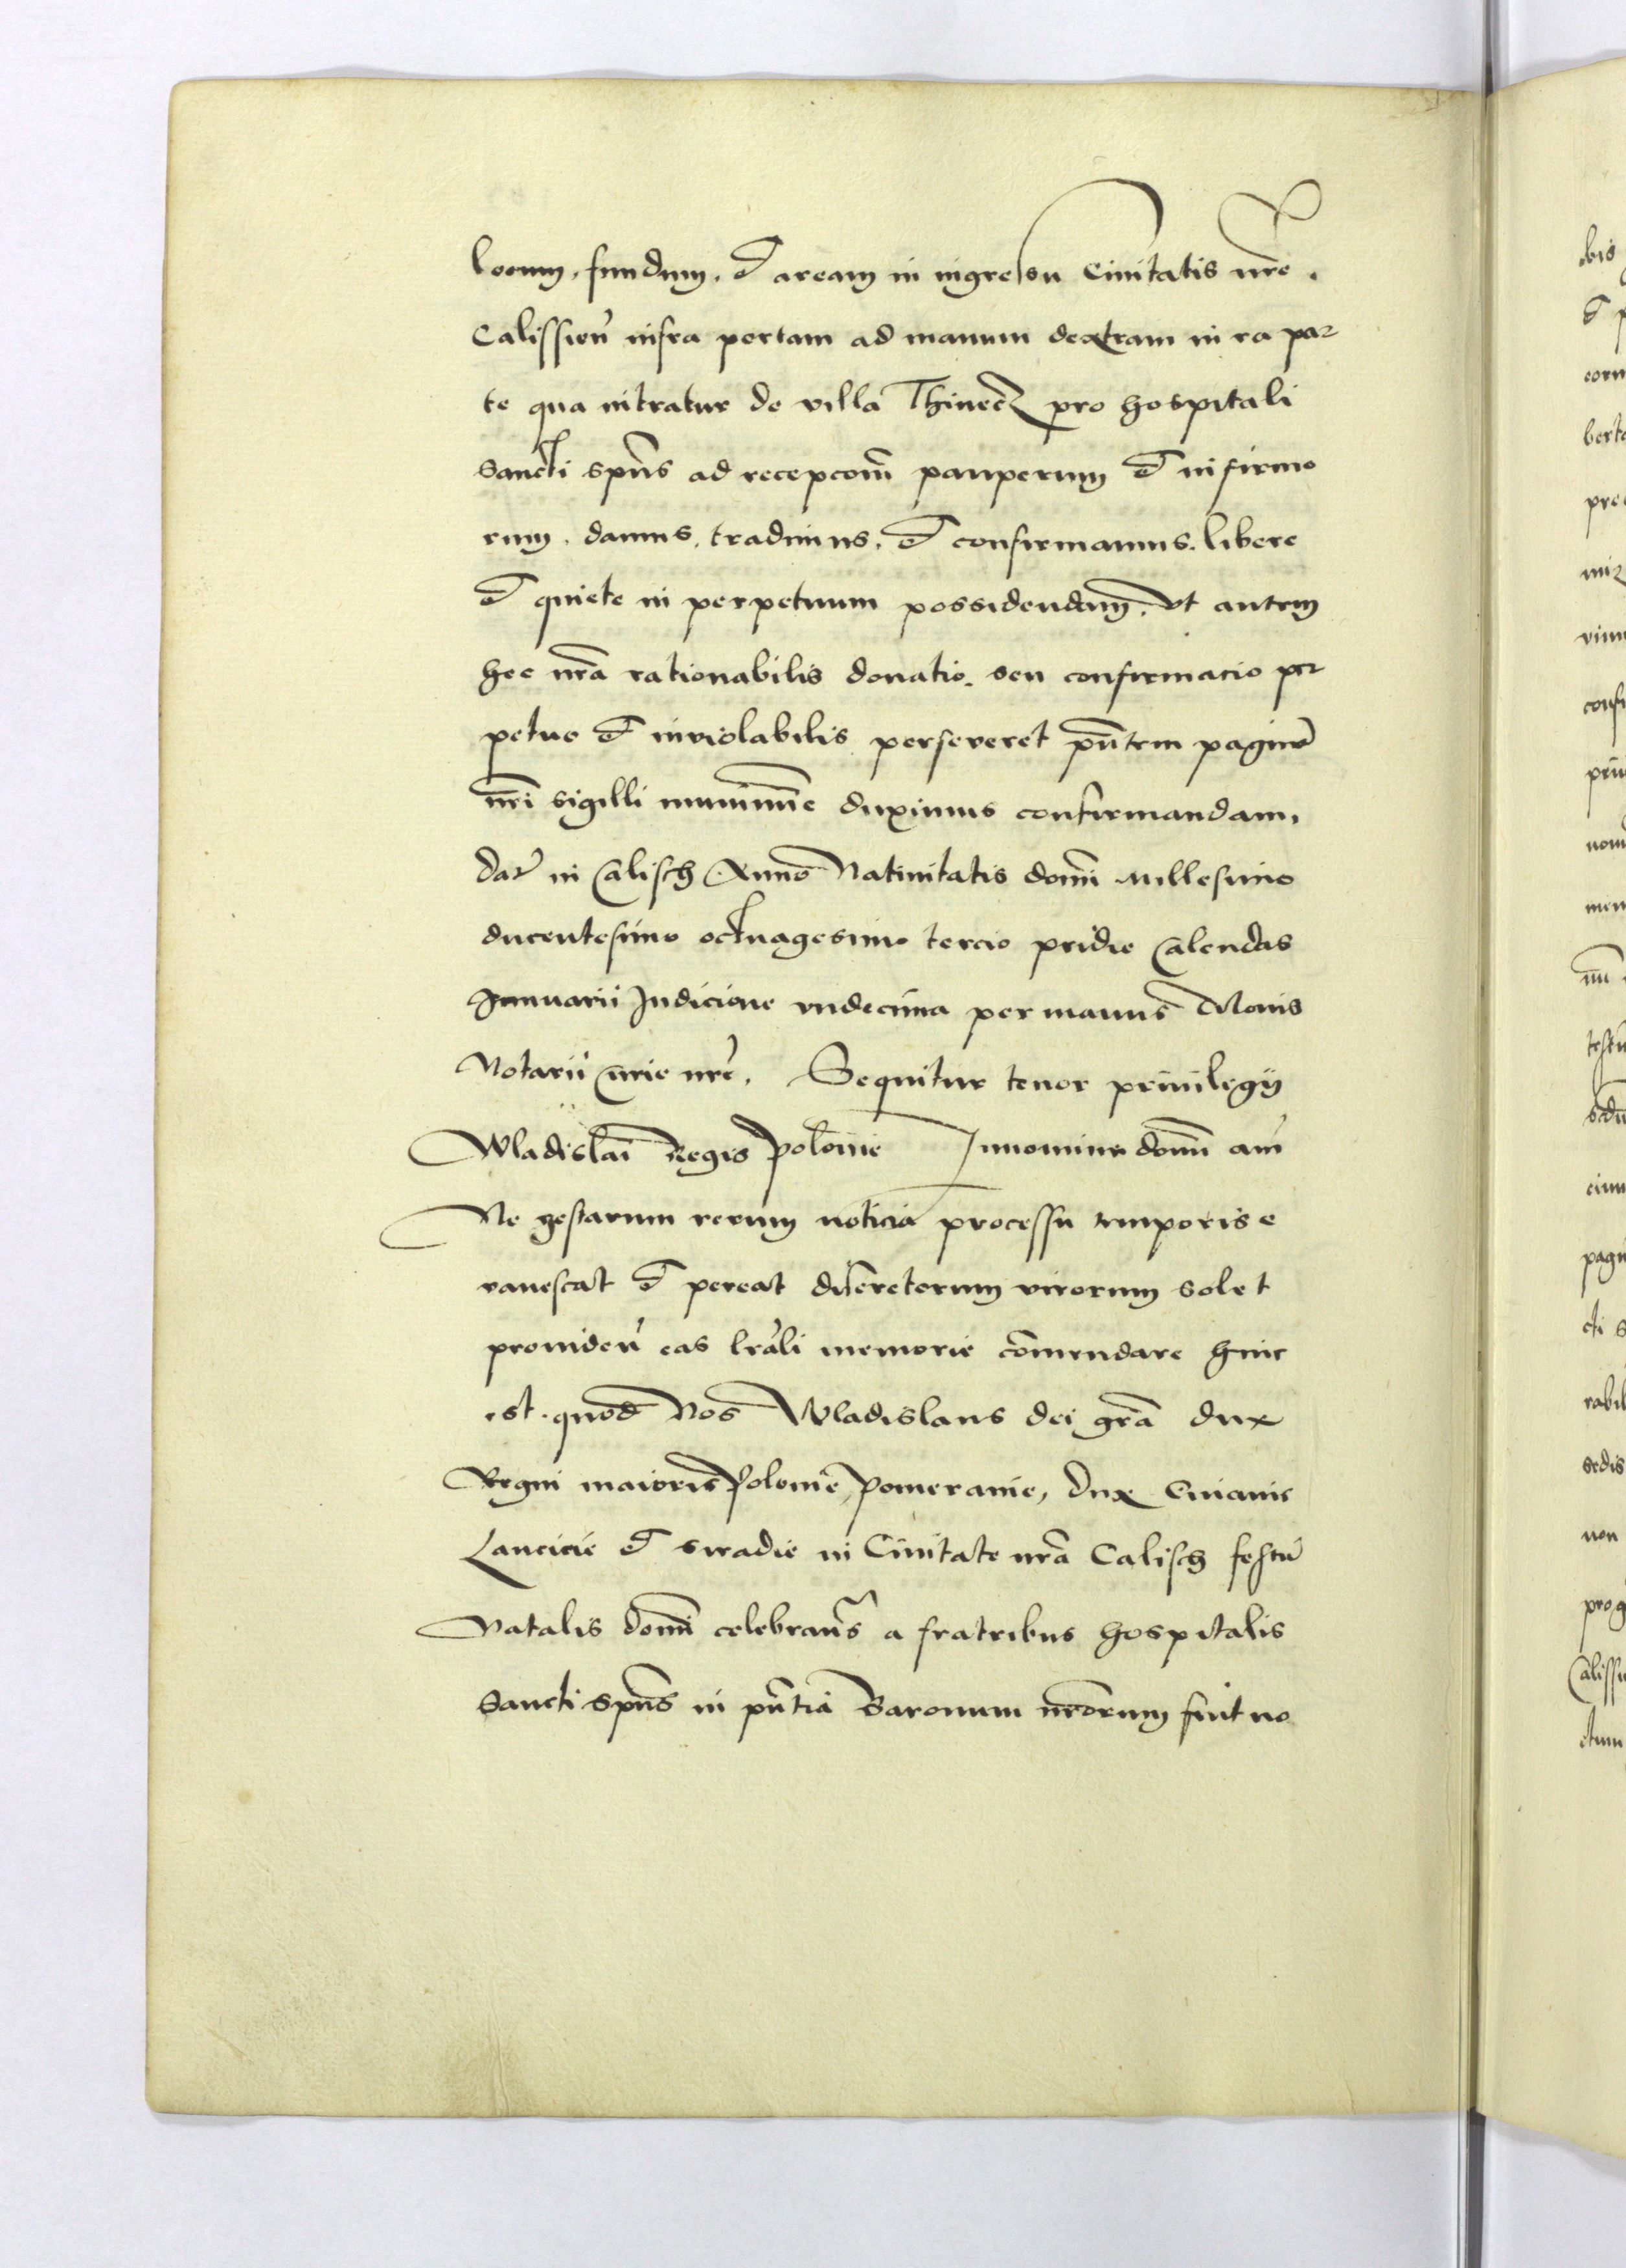 locum, fundum, et aream in ingressu Ciuitatis nr̄e.
Calissien̄ infra portam ad manum dextram in ea par
te qua intratur de villa Thinecz pro hospitali
Sancti sp̄us ad recepcōm pauperum et infirmo
rum, damus, tradimus, et confirmamus, libere
et quiete in perpetuum possidendam, Vt autem
hec nr̄a rationabilis donatio seu confirmacio per
petue et inviolabilis perseveret pn̄tem paginā
nr̄i sigilli munimine duximus confirmandam,
Dat̄ in Calisch Anno Natiuitatis domī Millesimo
ducentesimo octuagesimo tercio pridie Calendas
Januarii Indicione vndecima per manus Tilonis
Notarii Curie nr̄e. Sequitur tenor priuilegij
Wladislai Regis Polonie In nomine domī am̄
Ne gestarum rerum noticia processu temporis e
vanescat et pereat discretorum virorum solet
prouiden̄ eas lr̄ali memorie cōmendare hinc
est. quod Nos Wladislaus dei gr̄a dux
Regni maioris Polonie, Pomeranie, Dux Cuiauie
Lancicie et siradie in Ciuitate nr̄a Calisch festū
Natalis domī celebran̄s a fratribus hospitalis
Sancti Sp̄us in pn̄tia Baronum nr̄orum fuit no